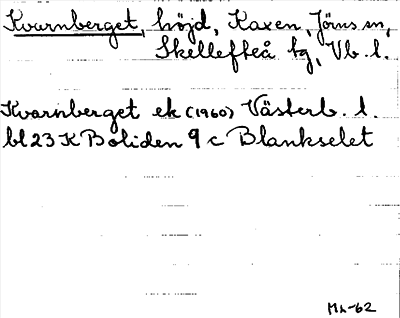 Kvarnberget, höjd, Kaxen, Jörns sn,
Skellefteå tg, Vb. l.
Kvarnberget ek (1960) Västerb. l.
bl 23 K Boliden 9 c Blankselet
Mh-62